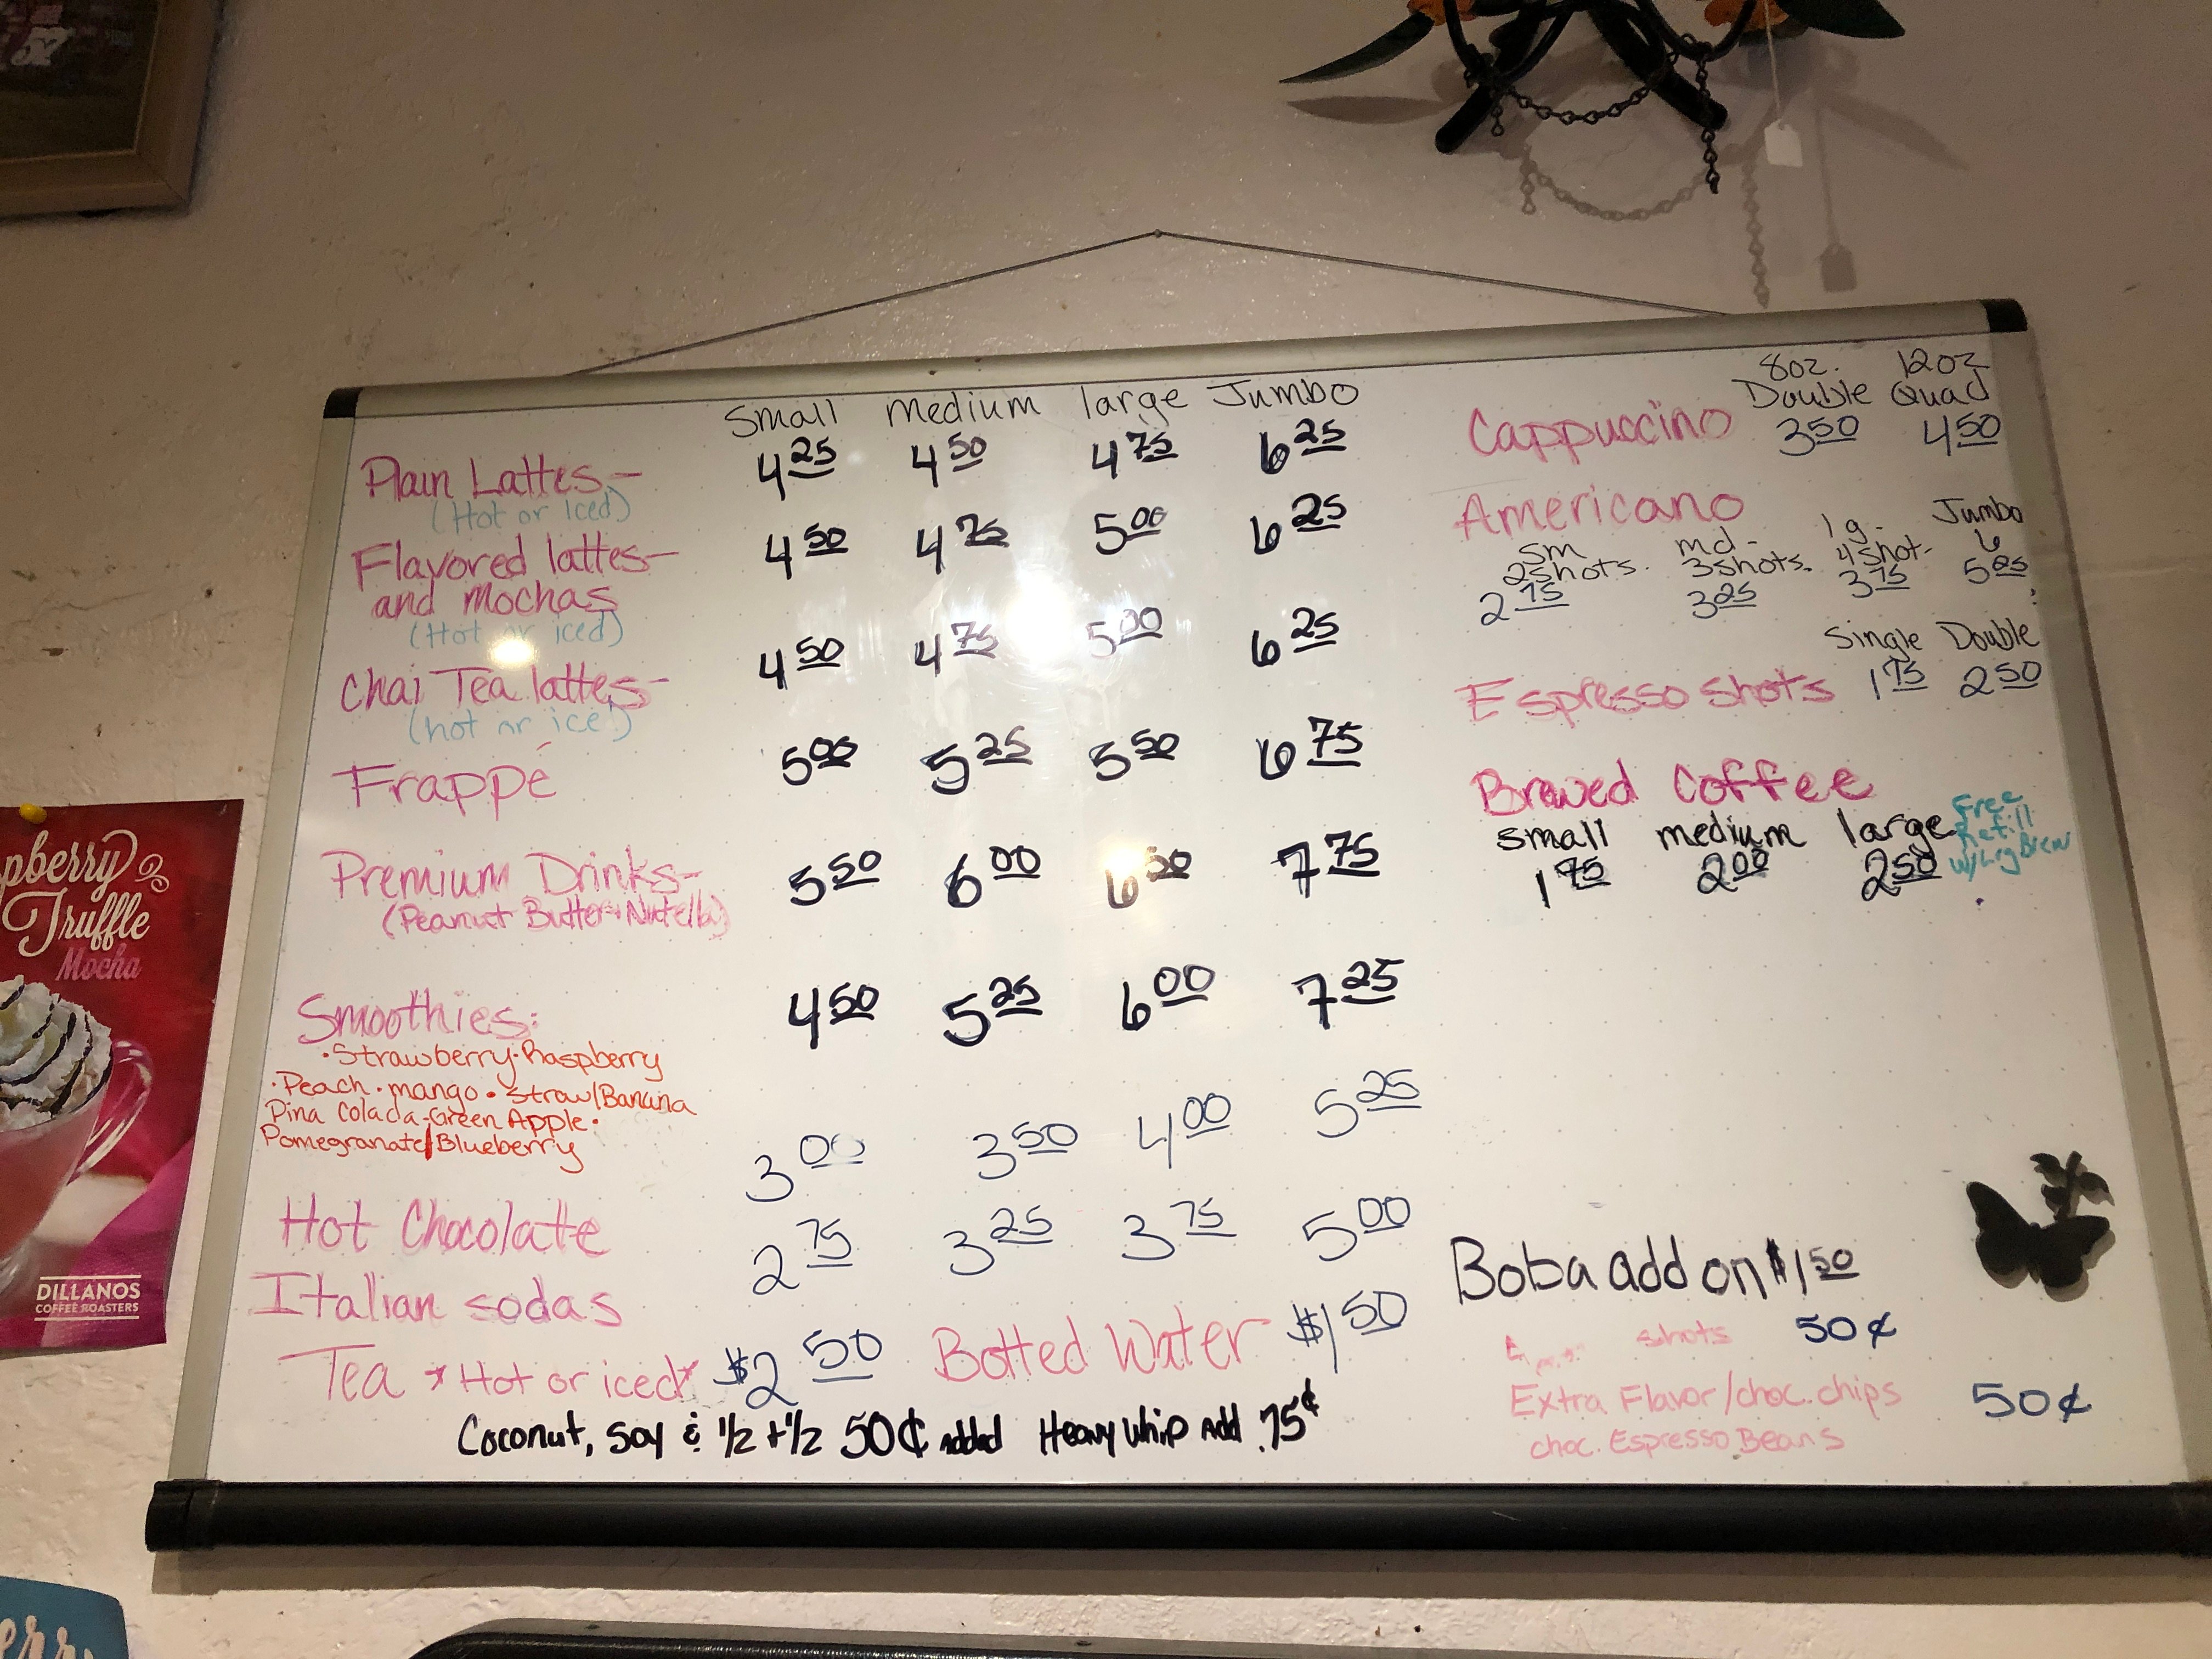 Small medium large Jumbo
Plain Lattes- 4 25 4 50 4 75 6 25
(Hot or Iced)
Flavored lattes- 4 50 4 75 5 00 6 25
and mochas
(Hot or iced)
Chai Tea lattes- 4 50 4 75 5 00 6 25
(hot or ice!)
Frappé 5 00 5 25 5 50 6 75
Premium Drinks- 5 50 6 00 6 50 7 75
(Peanut Butter + Nutella)
Smoothies: 4 50 5 25 6 00 7 25
·Strawberry·Raspberry
·Peach·mango·Straw/Banana
Pina Colada-Green Apple·
Pomegranate/Blueberry
Hot Chocolate 3 00 3 50 4 00 5 25
Italian sodas 2 75 3 25 3 75 5 00
Tea *Hot or iced* $2 50 Botted Water $1 50
Coconut, Soy & 1/2 + 1/2 50¢ added Heavy Whip Add .75¢
8oz. 12oz
Double Quad
Cappuccino 3 50 4 50
Americano
sm md- lg- Jumbo
2shots. 3shots. 4shot- 6
2 75 3 25 3 75 5 25
Single Double
Espresso shots 1 75 2 50
Brewed Coffee
small medium large
1 75 2 00 2 50
Free
Refill
w/Lrg Brew
Boba add on $1 50
shots 50¢
Extra Flavor/choc. chips 50¢
choc. Espresso Beans
Truffle
Mocha
DILLANOS
COFFEE ROASTERS